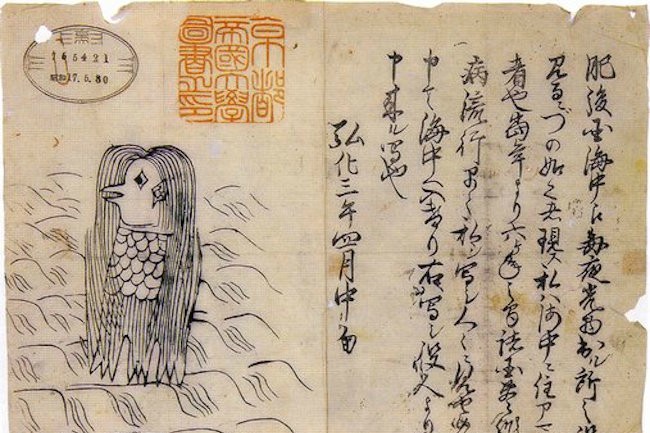 肥後国海中え毎夜光物出ル所之役
見るニづの如く者現ス私ハ海中ニ住アマ
者也当年より六ヶ年之間諸国豊作也併
病流行早々私写シ人々ニ見セ候
申て海中へ入けり右写シ役人より
申来ル写也
弘化三年四月中旬
京都
帝國大學
圖書之印
165421
昭和17.5.30